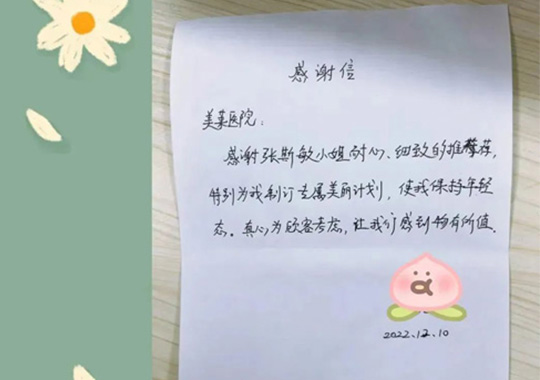 感谢信
美莱医院：
感谢张斯敏小姐耐心、细致的推荐，
特别为我制订专属美丽计划，使我保持年轻
态。真心为顾客考虑，让我们感到物有所值。
2022.12.10